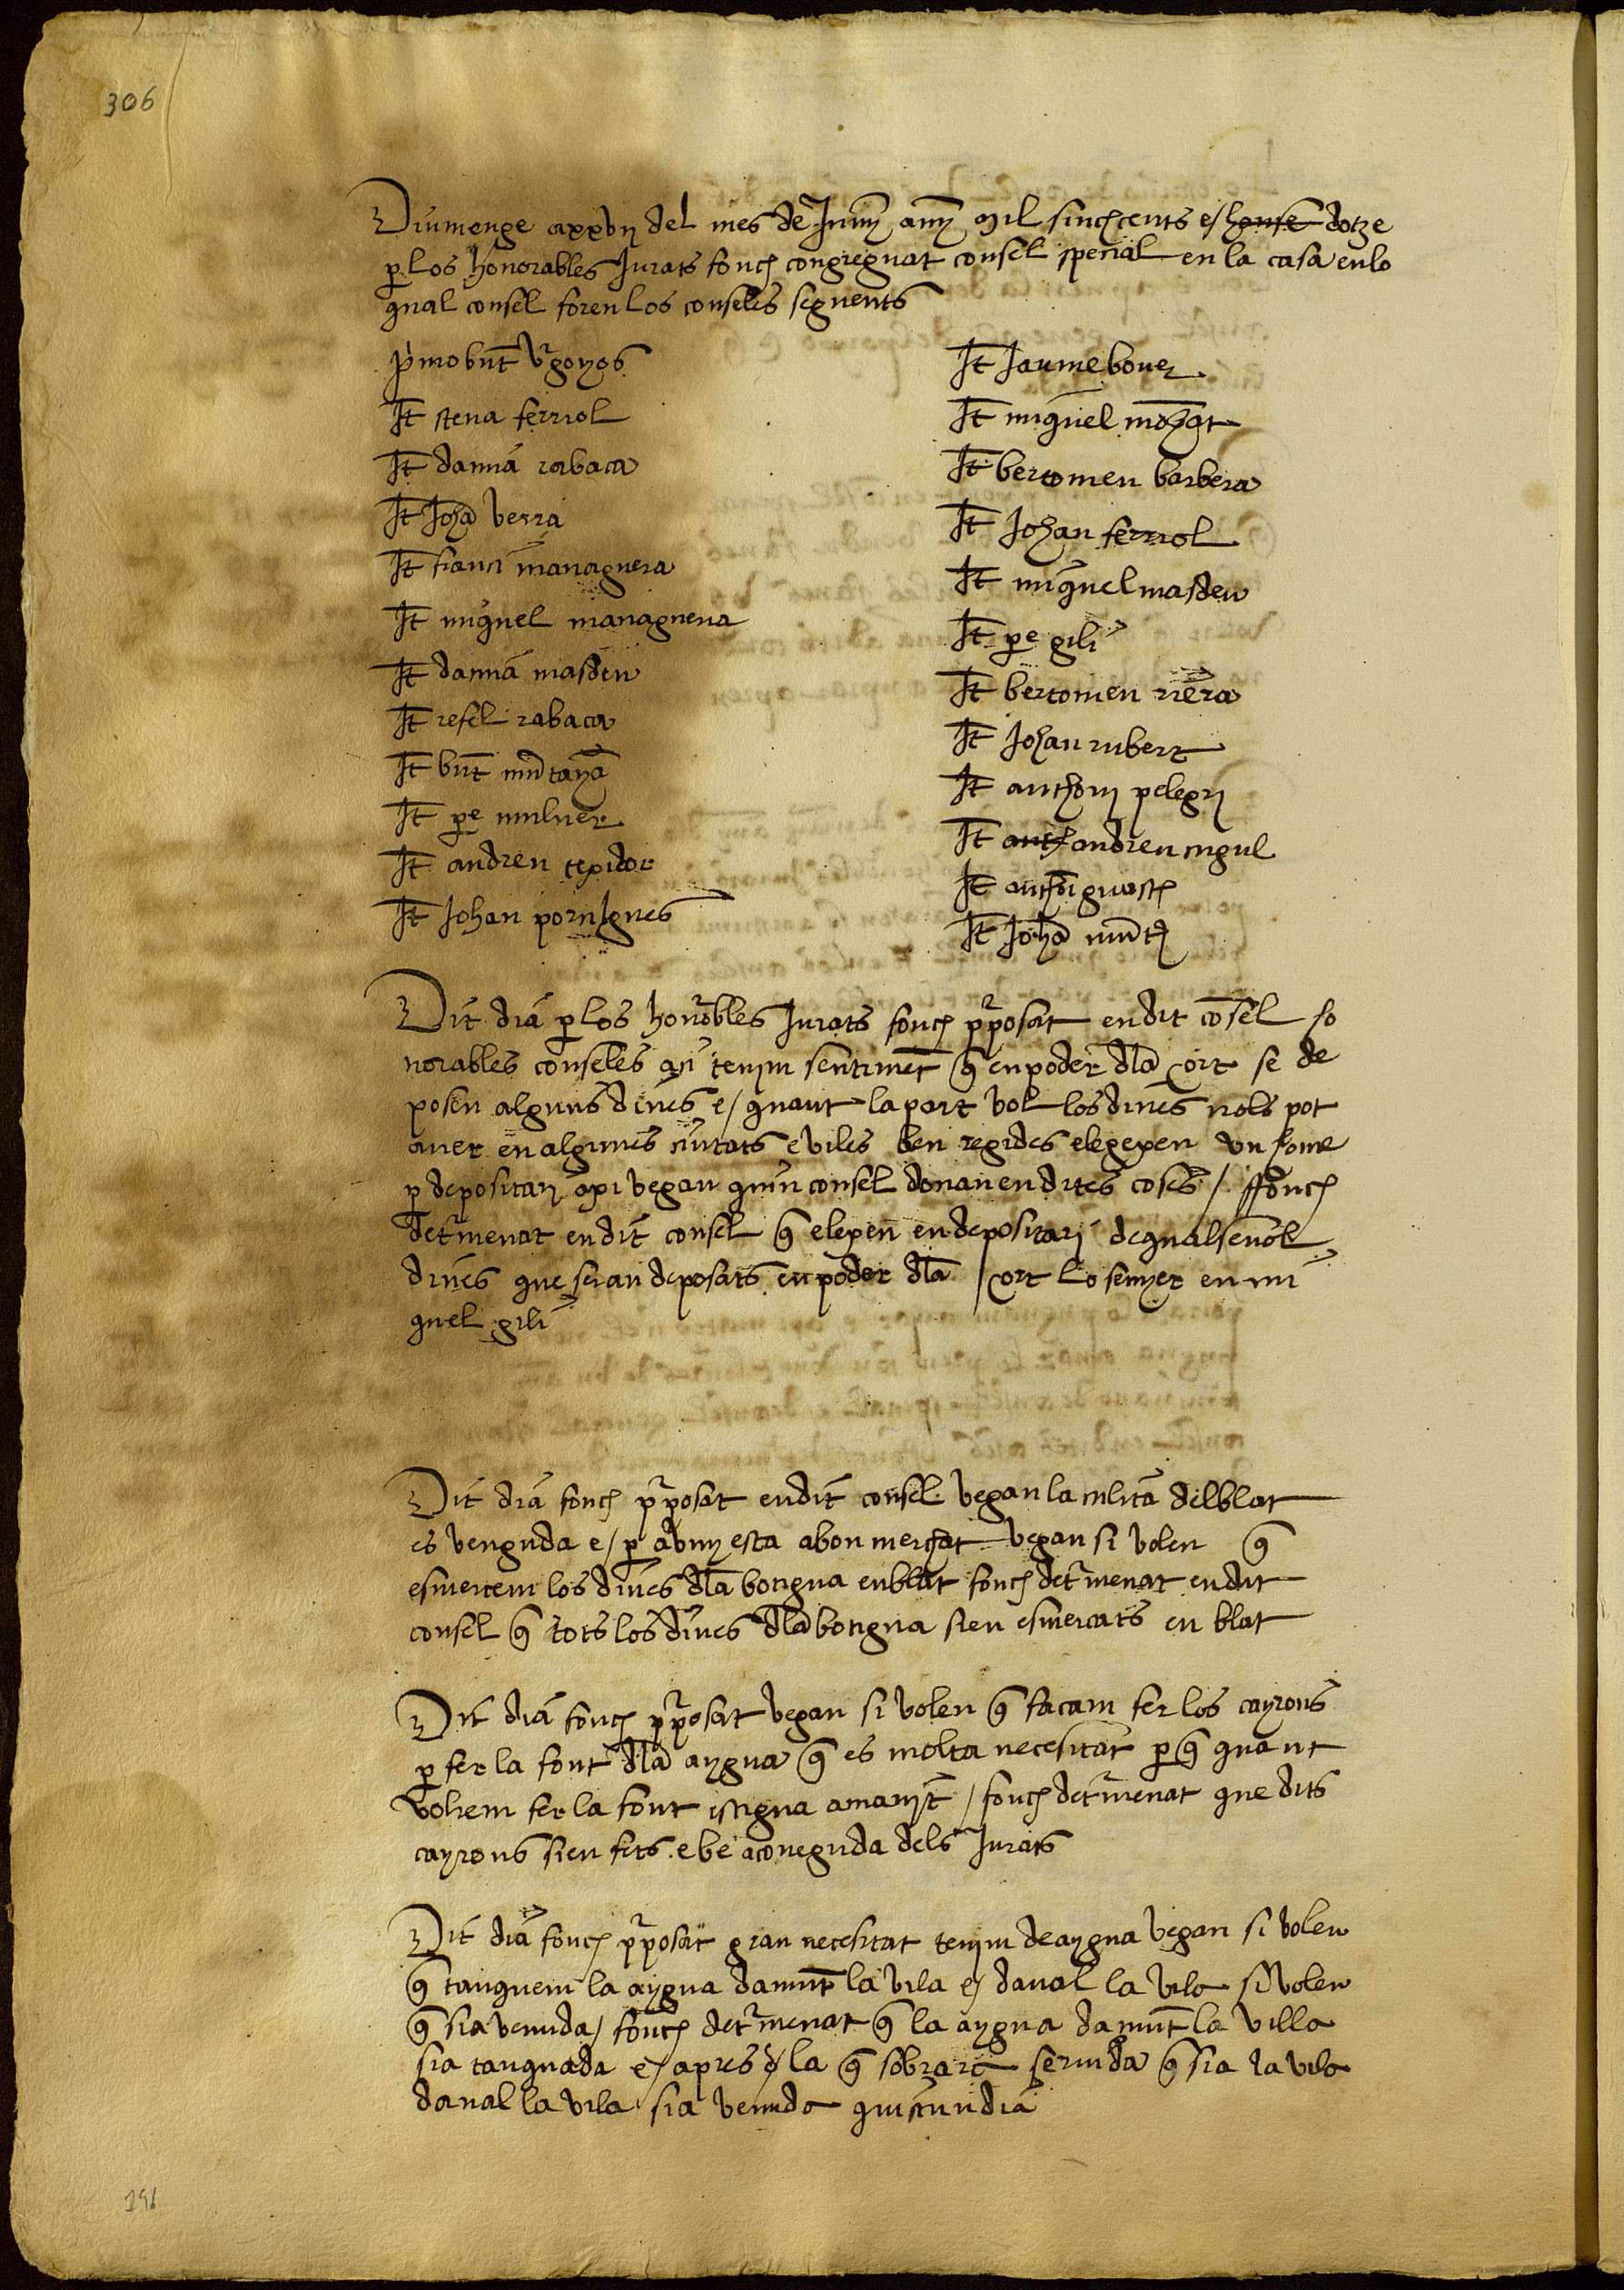 306
Diumenge a xxvij del mes de Juny any mil sinchcents e / honse dotze
per los honorables Jurats fonch congreguat consel special en la casa en lo
qual consel foren los conseles seguents
primo bnt vrgoyos
It steva ferriol
It damia rabaca
It Joha verra
It franci managuera
It miguel managuera
It damia masdeu
It refel rabaca
It bnt muntaya
It pe muluer
It andreu texidor
It Johan pornigues
It Jaume bouer
It miquel
It bertomeu barbera
It Johan ferriol
It miquel masdeu
It pe gili
It bertomeu riera
It Johan rubert
It anthoni pelegri
It anth andreu ingul
It anthoni guasch
It Joha
Dit dia per los honrobles Jurats fonch proposat en dit consel ho
norables conseles aci tenim sentiment que en poder dla cort se de
posen alguns dines e / quant la part vol los dines nols pot
auer en algunes ciutats e viles ben regides elegexen vn home
per depositari axi vegan quin consel donan en dites coses / ffonch
determenat en dit consel que elexen en depositari de qualseuol
dines que seran deposats en poder dla / cort lo senyer en mi
quel gili
Dit dia fonch proposat en dit consel vegan la culita del blat
es venguda e / per avuy esta a bon merchat vegan si volen que
esmercem los dines dla botigua en blat fonch determenat en dit
consel que tots los dines dla botigua sien esmercats en blat
Dit dia fonch proposat vegan si volen que facam fer los cayrons
per fer la font dla aygua que es molta necesitat per que quant
volrem fer la font istigua amanit / fonch determenat que dits
cayrons sien fets e be a coneguda dels Jurats
Dit dia fonch proposat gran necesitat tenim de aygua vegan si volen
que tanquem la aygua damunt la vila e / daual la vila si volen
que sia venuda / fonch determenat que la aygua damunt la villa
sia tanquada e / apres la que sobrara seruida que sia la vila
daual la vila sia venuda quiscun dia
191